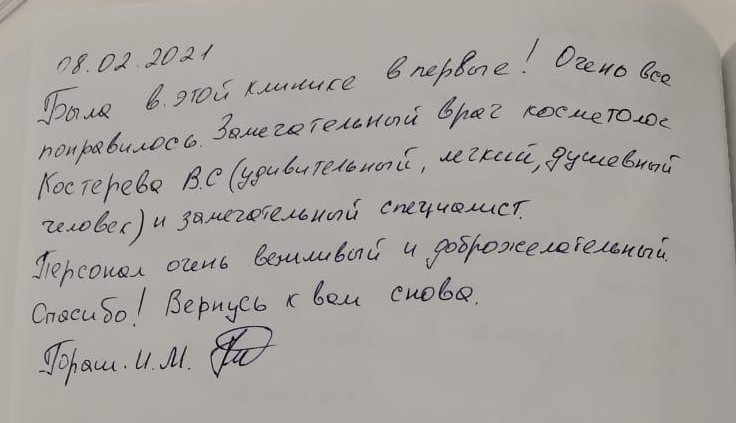 08.02.2021
Была в этой клинике впервые! Очень все
понравилось. Замечательный врач косметолог
Костерева В.С (удивительный, легкий, душевный
человек) и замечательный специалист.
Персонал очень вежливый и доброжелательный.
Спасибо! Вернусь к вам снова.
Гораш. И.М.